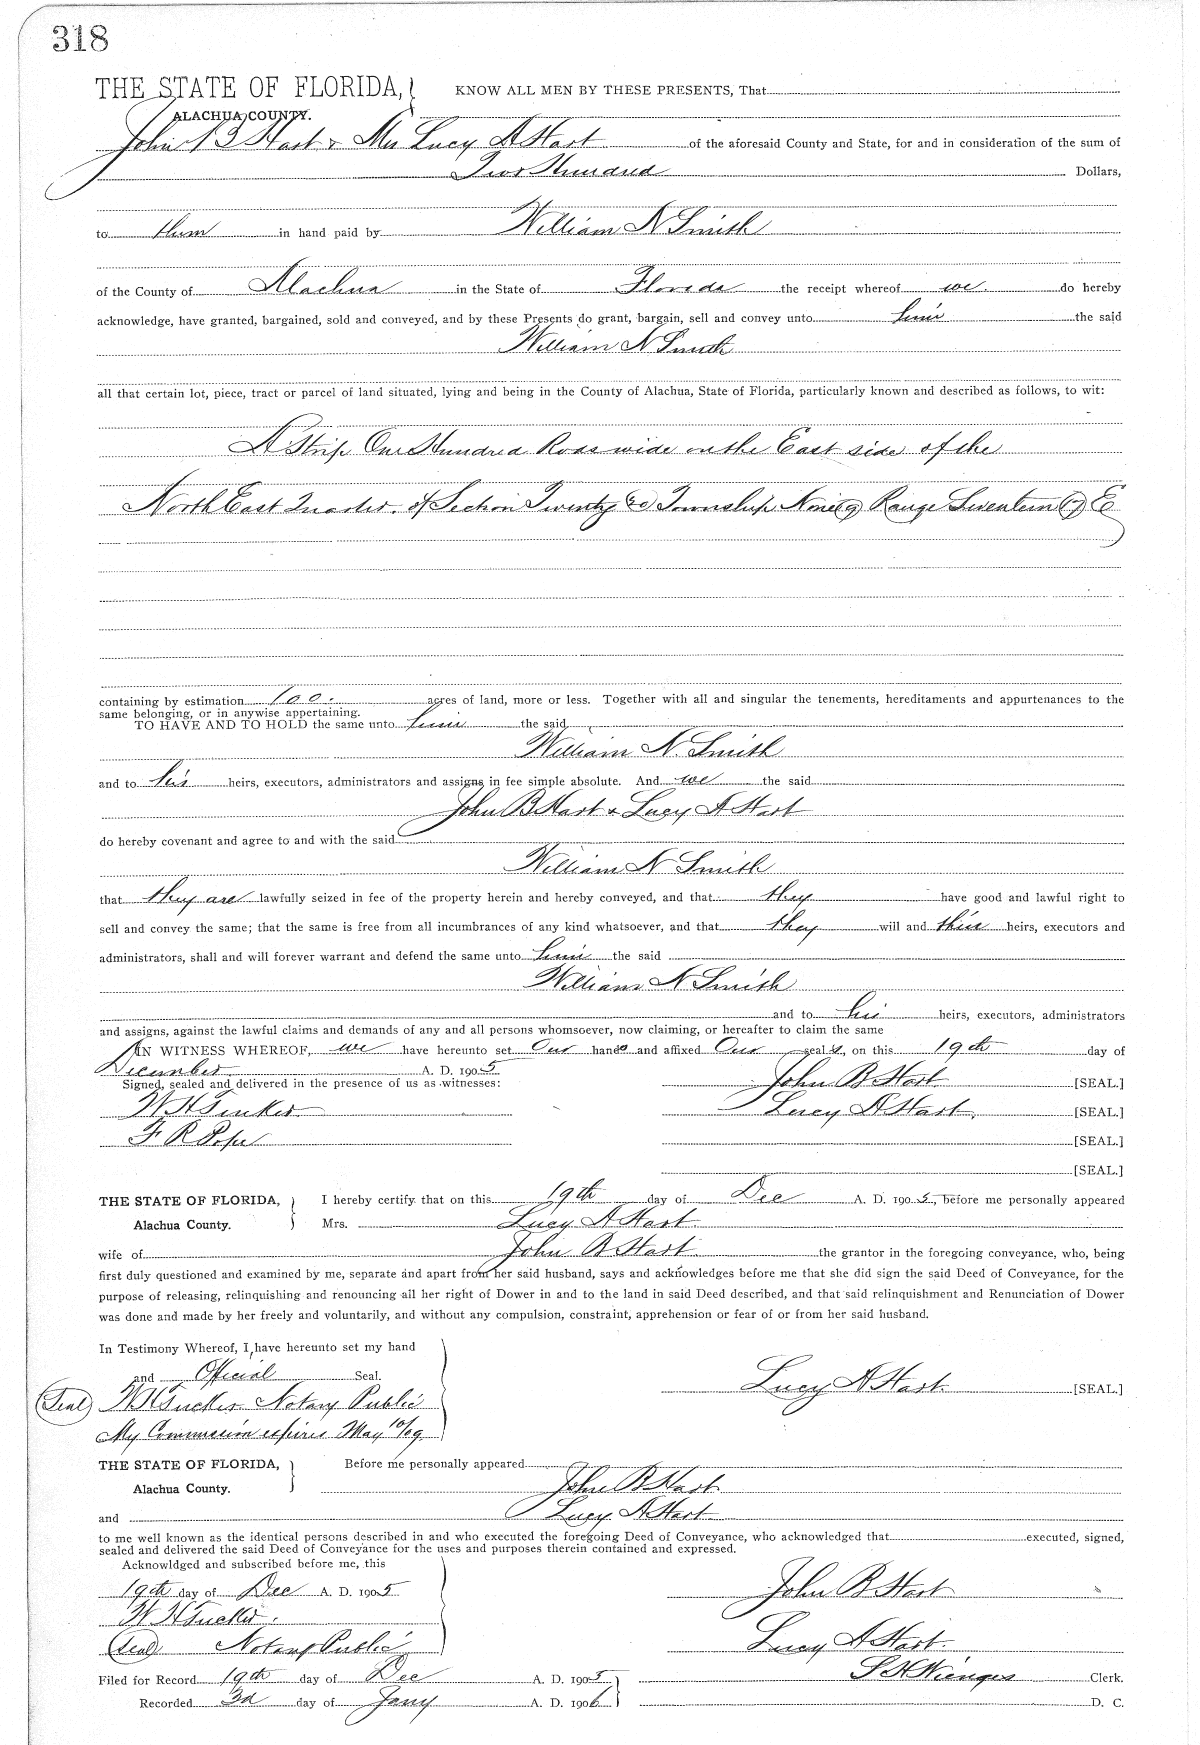 318
THE STATE OF FLORIDA, KNOW ALL MEN BY THESE PRESENTS, That
ALACHUA COUNTY.
John B Hart & Mrs Lucy A Hart of the aforesaid County and State, for and in consideration of the sum of
Two Hundred Dollars,
to them in hand paid by William N Smith
of the County of Alachua in the State of Florida the receipt whereof we do hereby
acknowledge, have granted, bargained, sold and conveyed, and by these Presents do grant, bargain, sell and convey unto him the said
William N Smith
all that certain lot, piece, tract or parcel of land situated, lying and being in the County of Alachua, State of Florida, particularly known and described as follows, to wit:
A Strip One Hundred Rods wide on the East side of the
North East Quarter. of Section Twenty (20) Township Nine (9) Range Seventeen (17) E
containing by estimation 100. acres of land, more or less. Together with all and singular the tenements, hereditaments and appurtenances to the
same belonging, or in anywise appertaining.
TO HAVE AND TO HOLD the same unto him the said
William N. Smith
and to his heirs, executors, administrators and assigns in fee simple absolute. And we the said
John B Hart & Lucy A Hart
do hereby covenant and agree to and with the said
William N Smith
that they are lawfully seized in fee of the property herein and hereby conveyed, and that they have good and lawful right to
sell and convey the same; that the same is free from all incumbrances of any kind whatsoever, and that they will and their heirs, executors and
administrators, shall and will forever warrant and defend the same unto him the said
William N Smith
and to his heirs, executors, administrators
and assigns, against the lawful claims and demands of any and all persons whomsoever, now claiming, or hereafter to claim the same
IN WITNESS WHEREOF, we have hereunto set Our hands and affixed Our seals, on this 19th day of
December A. D. 1905
Signed, sealed and delivered in the presence of us as witnesses: John B Hart [SEAL.]
W H Tucker Lucy A Hart. [SEAL.]
F R Pope [SEAL.]
[SEAL.]
THE STATE OF FLORIDA, I hereby certify that on this 19th day of Dec A. D. 1905, before me personally appeared
Alachua County. Mrs. Lucy A Hart
wife of John B Hart the grantor in the foregoing conveyance, who, being
first duly questioned and examined by me, separate and apart from her said husband, says and acknowledges before me that she did sign the said Deed of Conveyance, for the
purpose of releasing, relinquishing and renouncing all her right of Dower in and to the land in said Deed described, and that said relinquishment and Renunciation of Dower
was done and made by her freely and voluntarily, and without any compulsion, constraint, apprehension or fear of or from her said husband.
In Testimony Whereof, I have hereunto set my hand
and Official Seal. Lucy A Hart. [SEAL.]
(Seal) W H Tucker Notary Public
My Commission expires May 10/09.
THE STATE OF FLORIDA, Before me personally appeared
Alachua County. John B Hart
and Lucy A Hart
to me well known as the identical persons described in and who executed the foregoing Deed of Conveyance, who acknowledged that executed, signed,
sealed and delivered the said Deed of Conveyance for the uses and purposes therein contained and expressed.
Acknowldged and subscribed before me, this
19th day of Dec A. D. 1905 John B Hart
W H Tucker.
(Seal) Notary Public Lucy A Hart.
Filed for Record 19th day of Dec A. D. 1905 S H Wienges Clerk.
Recorded 3d day of Jany A. D. 1906 D. C.